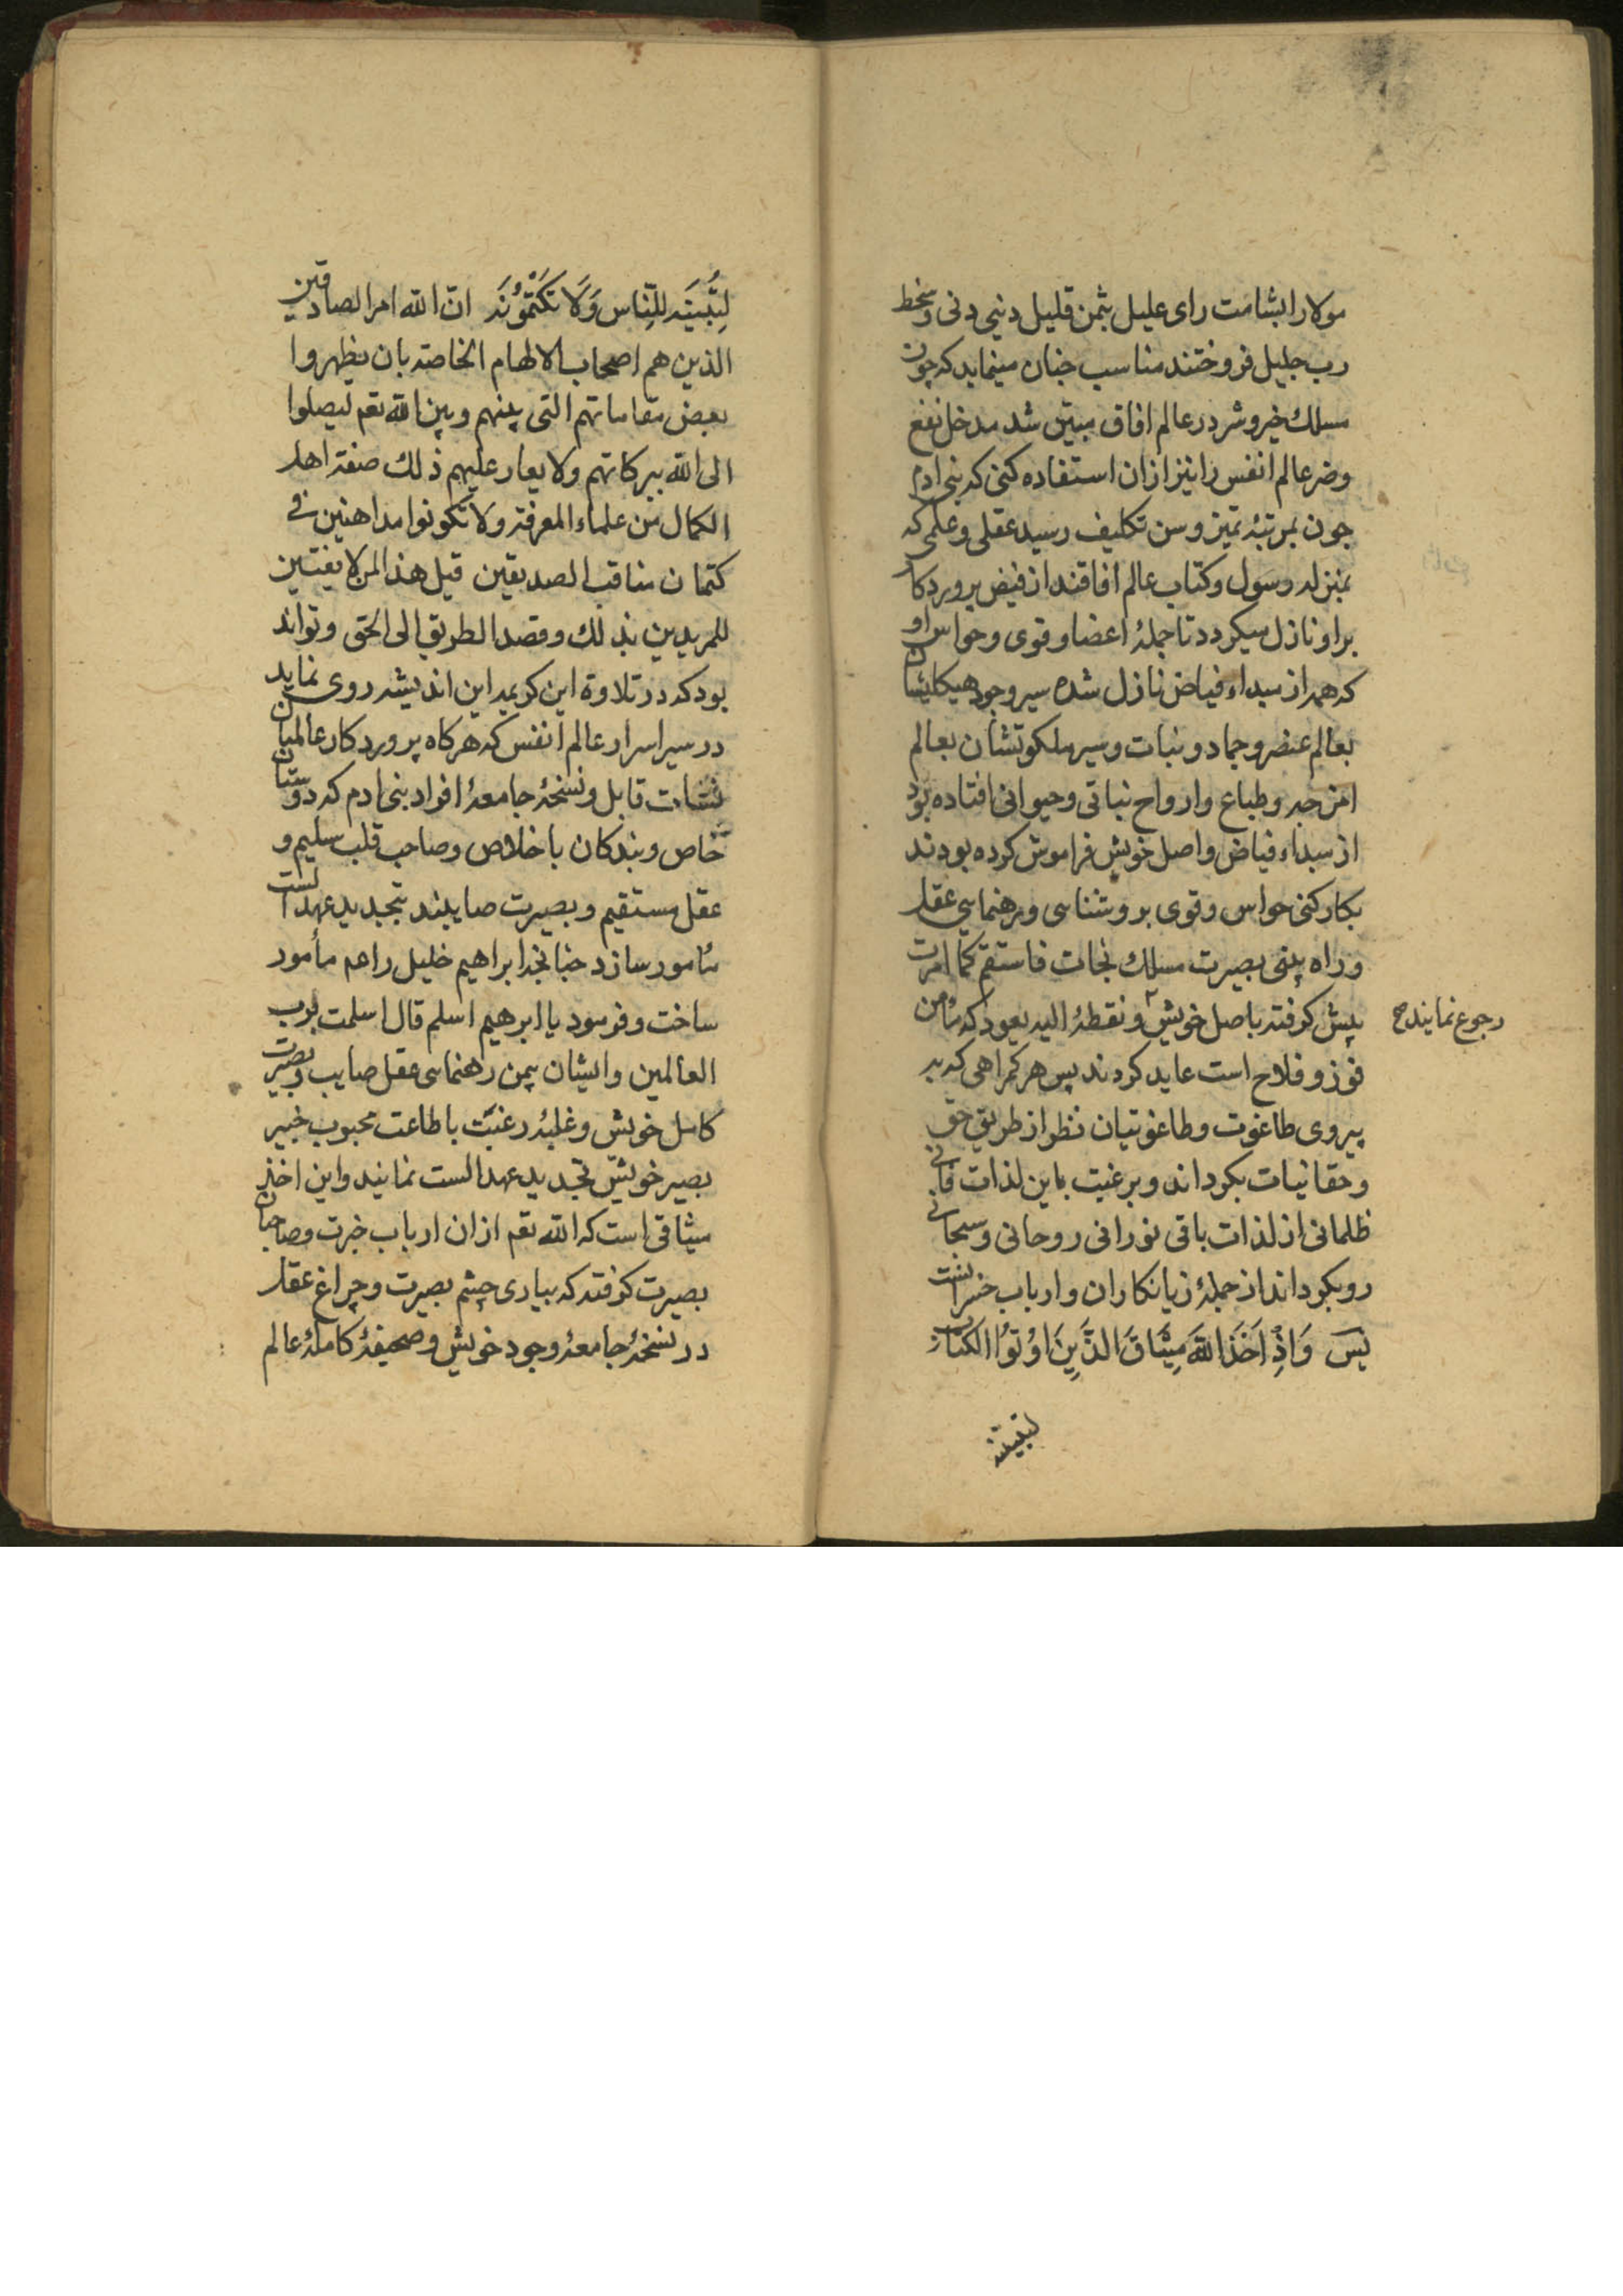 مولا را بشامت رای علیل بثمن قلیل دنیی دنی و سخط
رب جلیل فروختند مناسب جنان مینماید که چون
مسلک خیر و شر در عالم افاق مبتین شد مدخل نفع
و ضر عالم انفس را نیز ازان استفاده کنی که بنی ادم
جون بمرتبهٔ تمیز و سن تکلیف رسید عقلی و علمی که
بمنزله رسول و کتاب عالم افاقند از فیض پروردکار
بر او نازل میکردد تا جملهٔ اعضا و قوی و حواس او
که همه از مبداء فیاض نازل شده سیر وجود هیکلیشان
بعالم عنصر و جماد و نبات و سیر ملکوتشان بعالم
امزجه و طباع و ارواح نباتی و حیوانی افتاده بود
از مبداء فیاض و اصل خویش فراموش کرده بودند
بکارکنی حواس و قوی بروشناسی و رهنمایی عقل
و راه بینی بصیرت مسلک نجات فاستقم کما امرت
پیش کرفته باصل خویش و نقطهٔ الیه یعود که مأمن
رجوع نمایند صح
فوز و فلاح است عاید کردند پس هر کمراهی که به
پیروی طاغوت و طاغوتیان نظر از طریق حق
و حقانیات بکرداند و برغبت باین لذات فانی
ظلمانی از لذات باقی نورانی روحانی و سبحانی
رو بکرداند از جملهٔ زیانکاران و ارباب خسرانست
پس وَاِذْ اَخَذَ اللّهُ مِیثَاقَ الَّذِینَ اُوتُوا الکِتَابَ
لتبیننه
لِتُبَیِّنُنَّهُ لِلنَّاسِ وَلَا تَکْتُمُونَهُ ان الله امر الصادقین
الذین هم اصحاب الالهام الخاصه بان یظهروا
بعض مقاماتهم التی بینهم و بین الله تعم لیصلوا
الی الله ببرکاتهم ولا یعار علیهم ذلک صفته اهل
الکمال من علماء المعرفة ولا تکونوا مداهنین فی
کتمان مناقب الصدیقین قیل هذا لمن لا یفتتن
للمریدین بذلک و قصد الطریق الی الحق و تواند
بود که در تلاوة این کریمه این اندیشه روی نماید
در سیر اسرار عالم انفس که هرکاه پروردکار عالمیان
نشات قابل و نسخهٔ جامعهٔ افراد بنی ادم که دوستان
خاص و بندکان با خلاص و صاحب قلب سلیم و
عقل مستقیم و بصیرت صایبند بتجدید عهد الست
مأمور سازد جنانجه ابراهیم خلیل را عم مأمور
ساخت و فرمود یا ابرهیم اسلم قال اسلمت لرب
العالمین و ایشان بیمن رهنمایی عقل صایب و بصیرت
کامل خویش و غلبهٔ رغبت باطاعت محبوب خبیر
بصیر خویش تجدید عهد الست نمایند و این اخذ
میثاقی است که الله تعم ازان ارباب خبرت و صاحبان
بصیرت کرفته که بیاری چشم بصیرت و چراغ عقل
در نسخهٔ جامعهٔ وجود خویش و صحیفهٔ کاملهٔ عالم